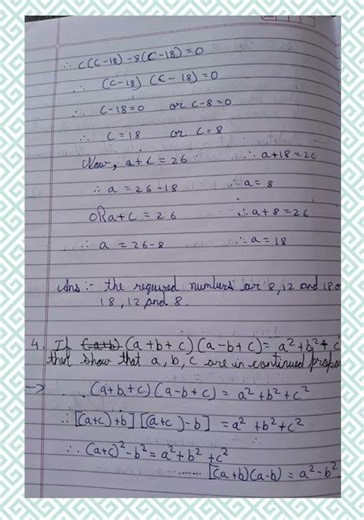 ∴ c(c-18) -8(c-18)=0
∴ (c-18) (c-18)=0
∴ c-18=0 or c-8=0
∴ c=18 or c=8
Now, a+c=26 ∴ a+18=26
∴ a = 26-18 ∴ a= 8
OR a+c = 26 ∴ a+8=26
∴ a = 26-8 ∴ a=18
Ans :- the required numbers ar 8,12 and 18 o
18,12 and 8.
4. If (a+b+c) (a-b+c)= a²+b²+c
then show that a, b, c are in continued propo
→ ∴ (a+b+c) (a-b+c) = a²+b²+c²
∴ [(a+c)+b] [(a+c)-b] = a²+b²+c²
∴ (a+c)²-b²=a²+b²+c²
....... [(a+b)(a-b) = a²-b²